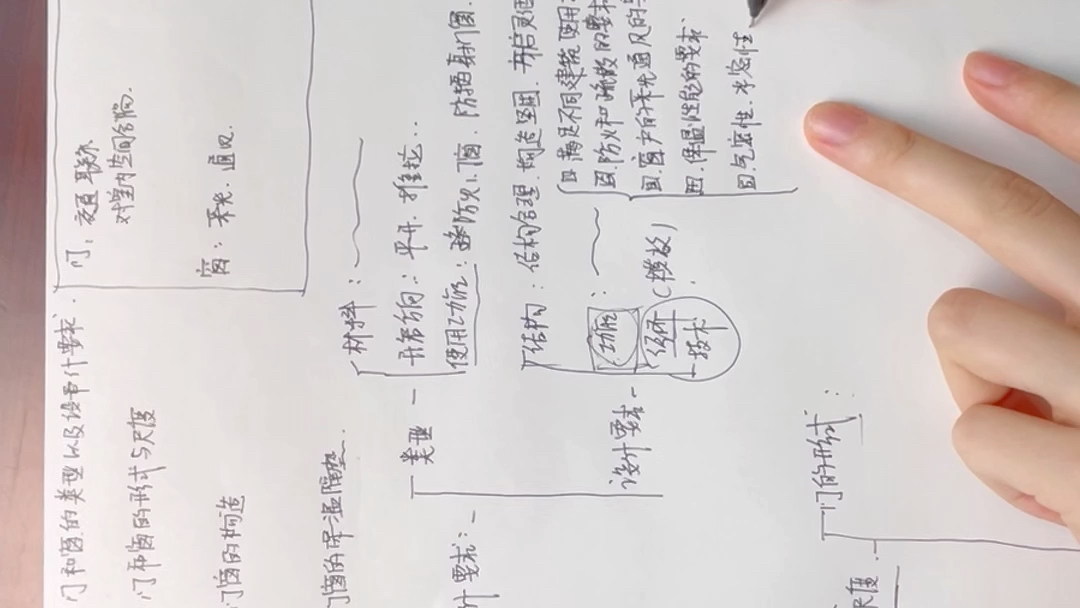 门和窗的类型以及设计要求.
门和窗的形式与尺度
门窗的构造
门窗的保温隔热.
门: 交通联系
对室内空间分隔.
窗: 采光. 通风.
计要求:
类型
材料:
开启方向: 平开. 推拉..
使用功能: 防火门窗. 防插射门窗.
设计要求
结构: 结构合理. 构造坚固. 开启灵活
功能:
满足不同建筑使用
防火和疏散的要求
窗户的采光通风的
保温性能的要求.
气密性. 水密性
经济 (模数)
技术
门的形式:
尺度